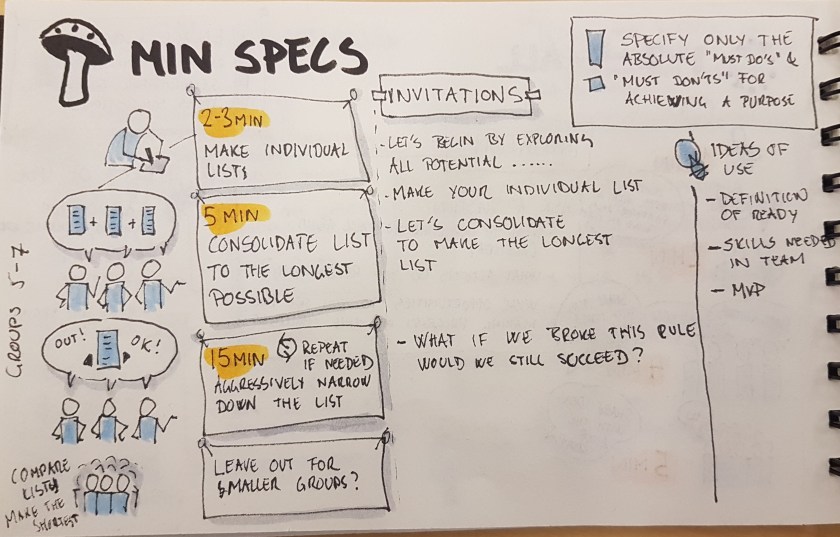 MIN SPECS
SPECIFY ONLY THE
ABSOLUTE "MUST DO'S" &
"MUST DON'TS" FOR
ACHIEVING A PURPOSE
2-3 MIN
MAKE INDIVIDUAL
LISTS
5 MIN
CONSOLIDATE LIST
TO THE LONGEST
POSSIBLE
15 MIN REPEAT
IF NEEDED
AGGRESSIVELY NARROW
DOWN THE LIST
LEAVE OUT FOR
SMALLER GROUPS?
INVITATIONS
- LET'S BEGIN BY EXPLORING
ALL POTENTIAL ......
- MAKE YOUR INDIVIDUAL LIST
- LET'S CONSOLIDATE
TO MAKE THE LONGEST
LIST
- WHAT IF WE BROKE THIS RULE
WOULD WE STILL SUCCEED?
IDEAS OF
USE
- DEFINITION
OF READY
- SKILLS NEEDED
IN TEAM
- MVP
GROUPS 5-7
+ +
OUT! OK!
COMPARE
LISTS
MAKE THE
SHORTEST